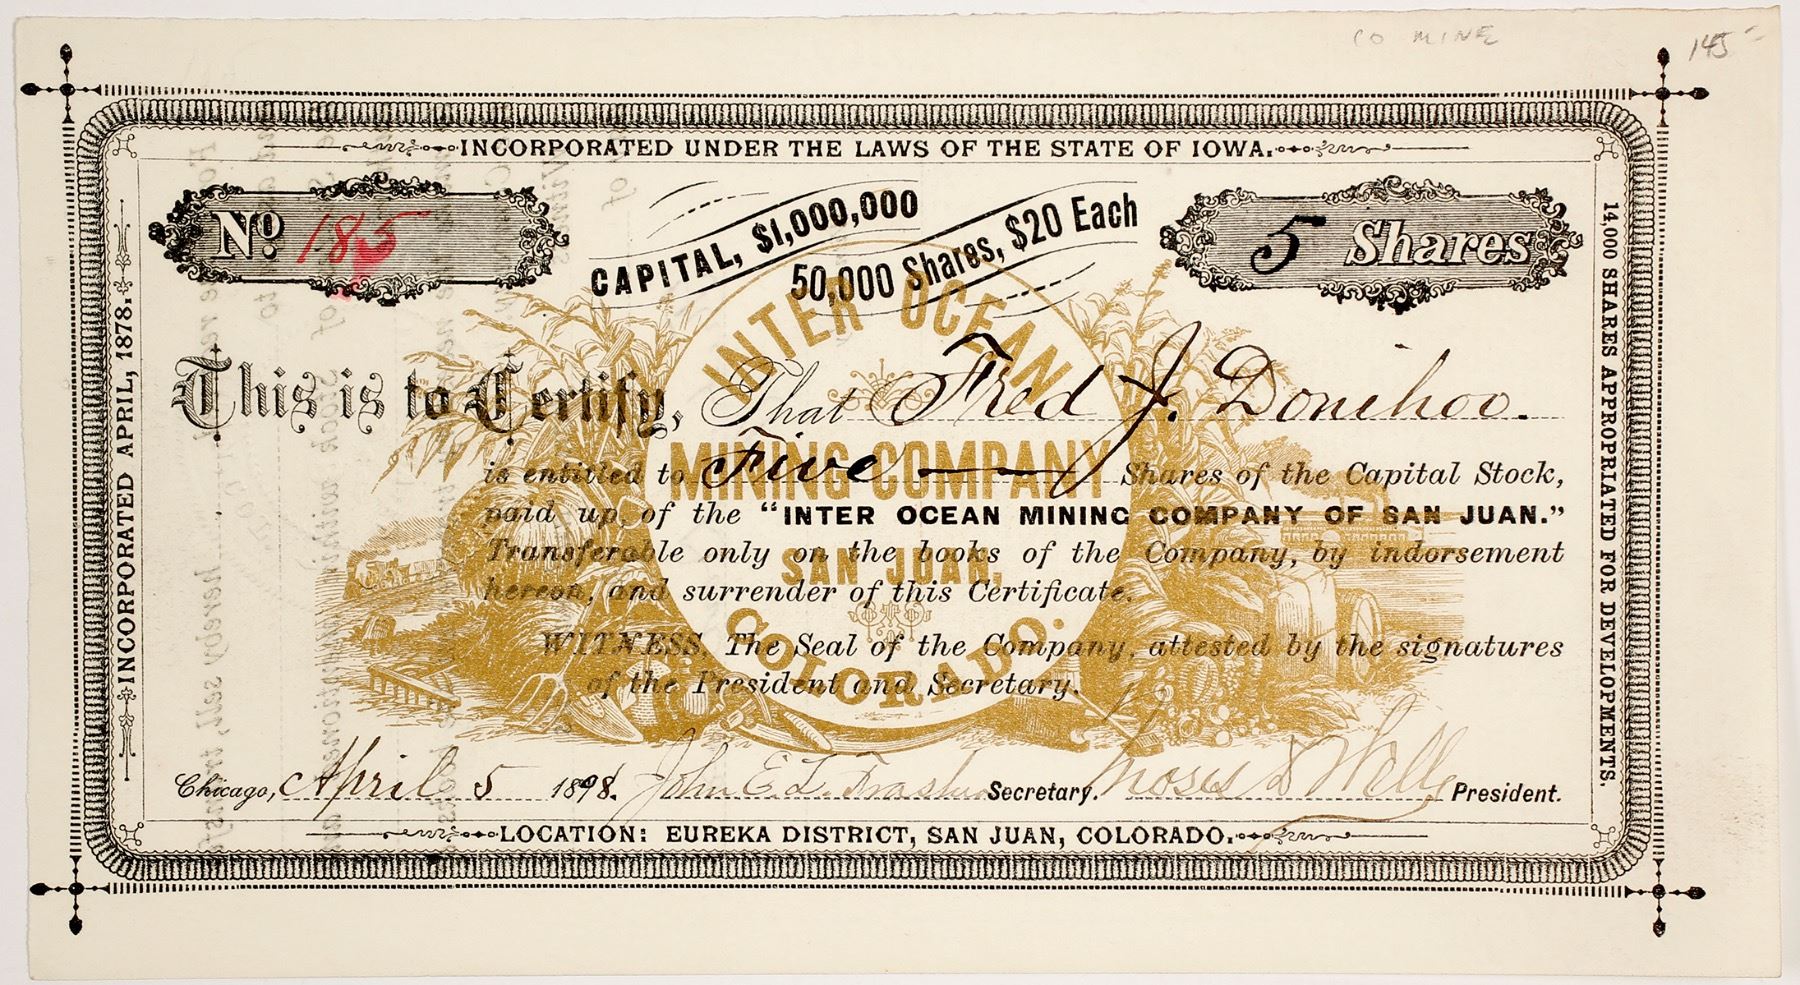 CO MINE 145
INCORPORATED UNDER THE LAWS OF THE STATE OF IOWA.
No. 185
CAPITAL, $1,000,000
50,000 Shares, $20 Each
5 Shares
INCORPORATED APRIL, 1878.
14,000 SHARES APPROPRIATED FOR DEVELOPMENTS.
INTER OCEAN
MINING COMPANY
SAN JUAN,
COLORADO.
This is to Certify, That Fred J. Donihoo.
is entitled to Five Shares of the Capital Stock,
paid up, of the "INTER OCEAN MINING COMPANY OF SAN JUAN."
Transferable only on the books of the Company, by indorsement
hereon, and surrender of this Certificate.
WITNESS, The Seal of the Company, attested by the signatures
of the President and Secretary.
Chicago, April 5 1898. John E. L. Secretary. Moses D Wells President.
LOCATION: EUREKA DISTRICT, SAN JUAN, COLORADO.